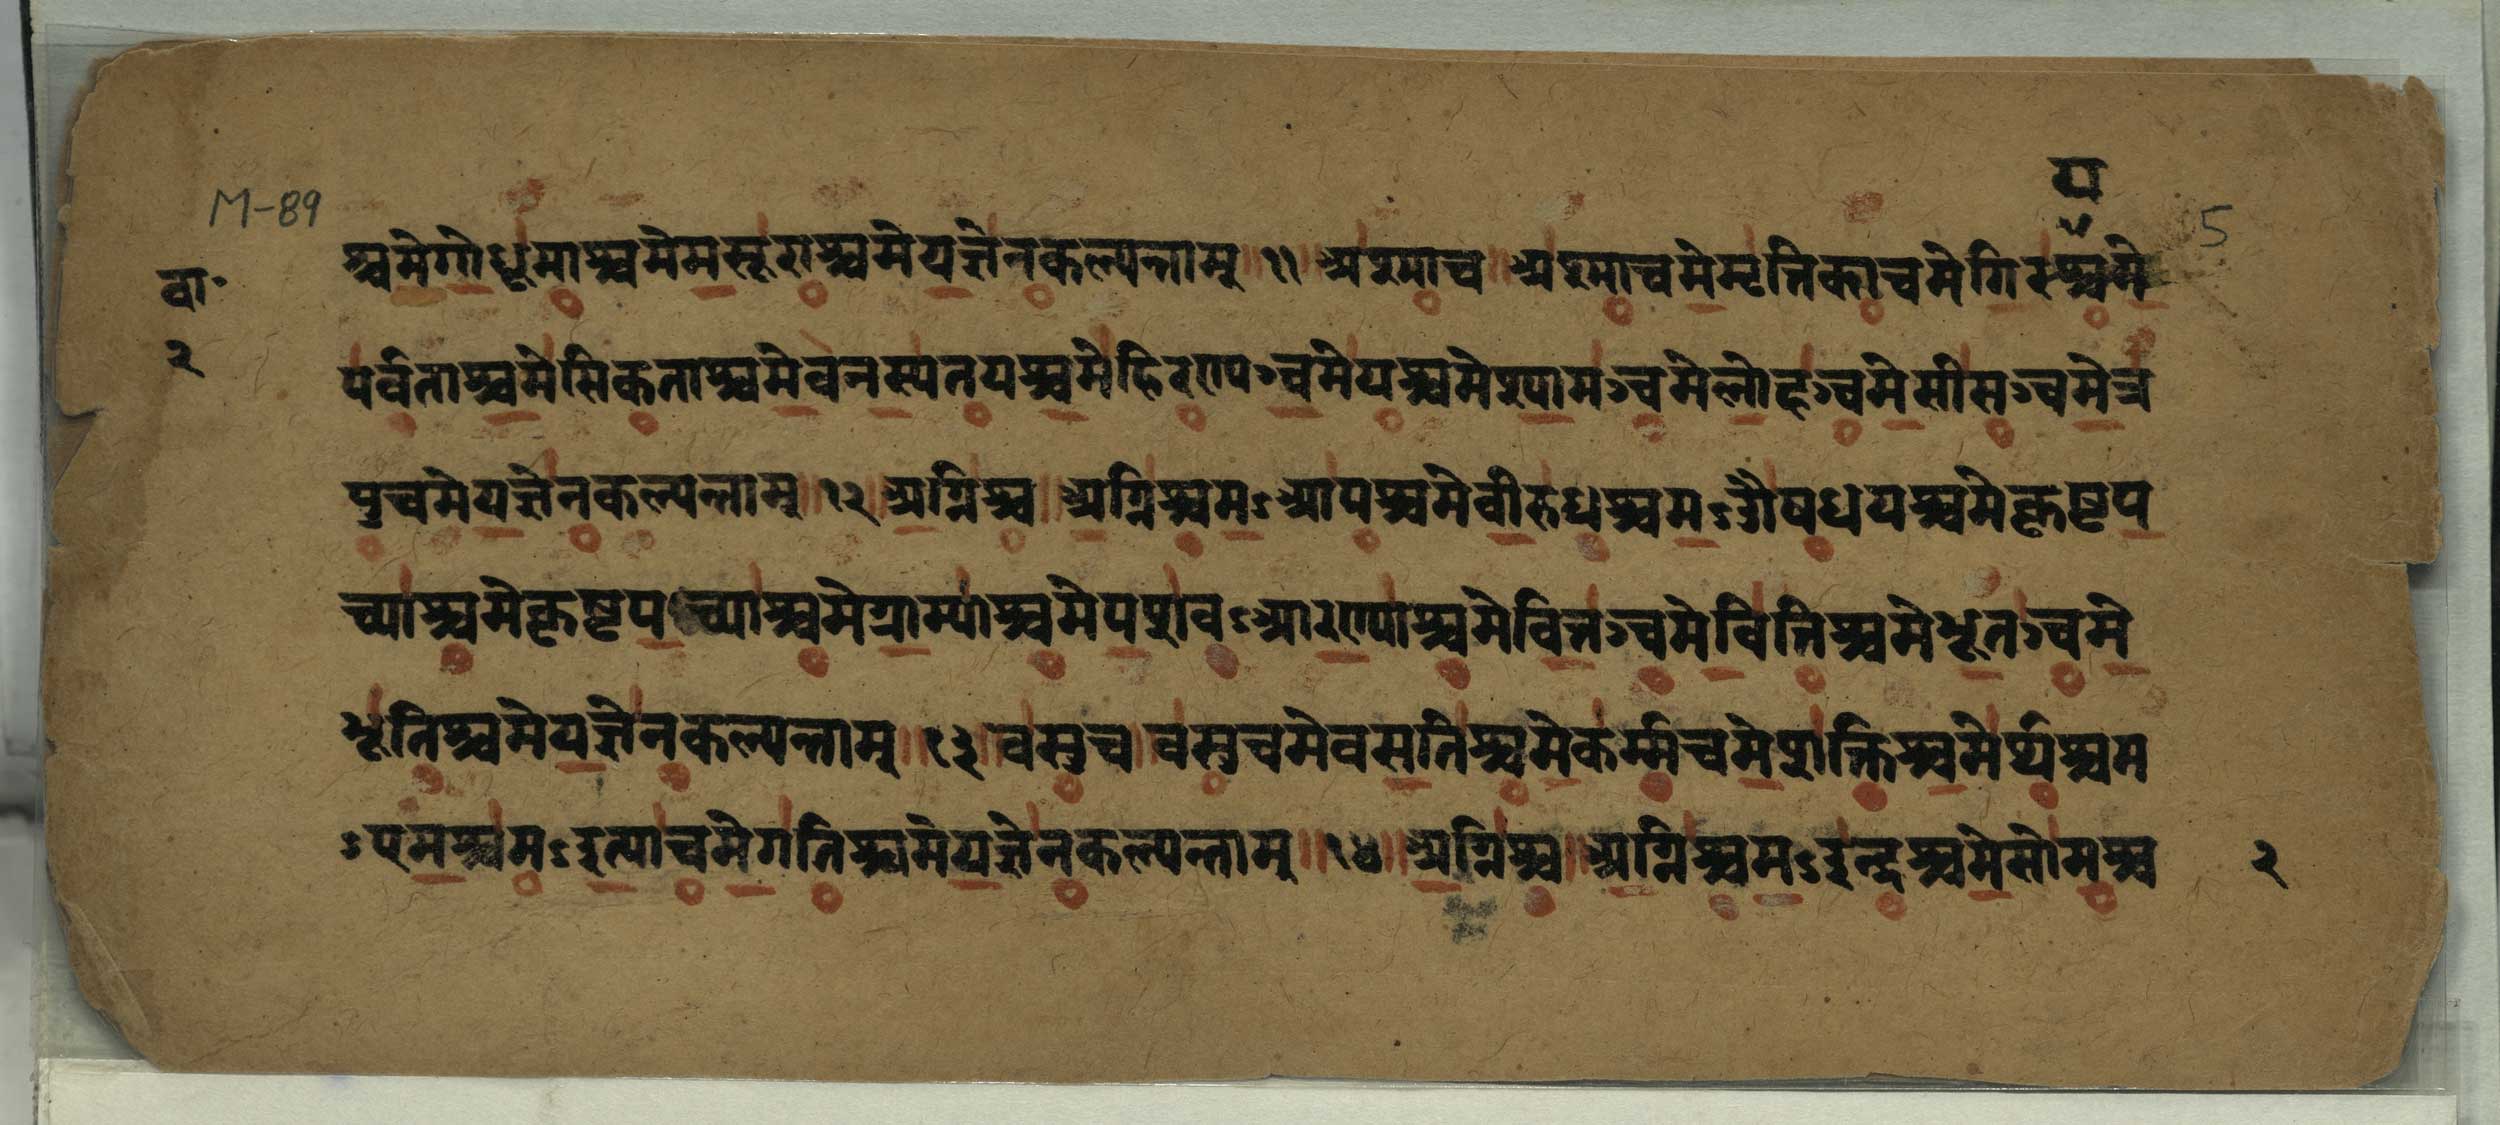 य
M-89
5
श्चमेगोधूमाश्चमेमसूराश्चमेयज्ञेनकल्पन्ताम् ॥ ११ अश्माच ॥ अश्माचमेमृत्तिकाचमेगिरयश्चमे
वा॰
२
पर्वताश्चमेसिकताश्चमेवनस्पतयश्चमेहिरण्यञ्चमेयश्चमेश्यामञ्चमेलोहञ्चमेसीसञ्चमेत्र
पुचमेयज्ञेनकल्पन्ताम् ॥ १२ ॥ अग्निश्च ॥ अग्निश्चमऽआपश्चमेवीरुधश्चमऽओषधयश्चमेकृष्टप
च्याश्चमेकृष्टपच्याश्चमेग्राम्याश्चमेपशवऽआरण्याश्चमेवित्तञ्चमेवित्तिश्चमेभूतञ्चमे
भूतिश्चमेयज्ञेनकल्पन्ताम् ॥ १३ ॥ वसुच ॥ वसुचमेवसतिश्चमेकर्म्मचमेशक्तिश्चमेर्थश्चम
ऽएमश्चमऽइत्याचमेगतिश्चमेयज्ञेनकल्पन्ताम् ॥ १४ ॥ अग्निश्च ॥ अग्निश्चमऽइन्द्रश्चमेसोमश्च
२